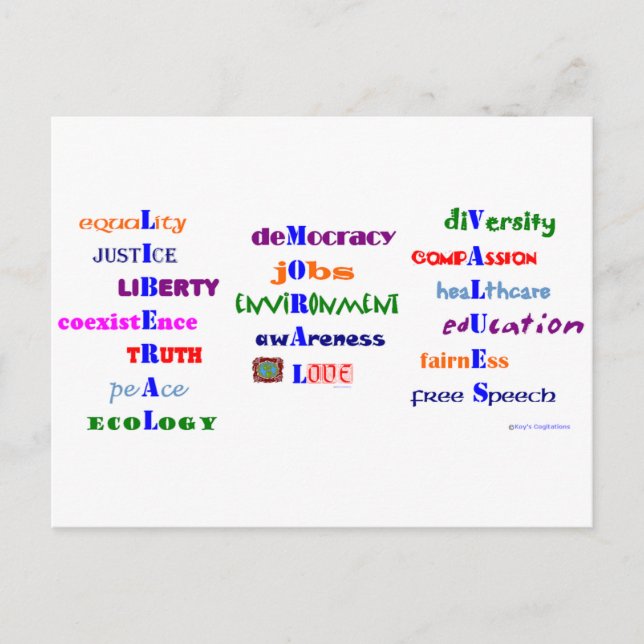 equaLity
JUSTICE
LIBERTY
coexistEnce
TRUTH
peAce
ECOLOGY
deMocracy
jObs
ENViRONMENT
awAreness
LOVE
diVersity
COMPASSION
heaLthcare
edUcation
fairnEss
FREE SPEECH
©Roy's Cogitations